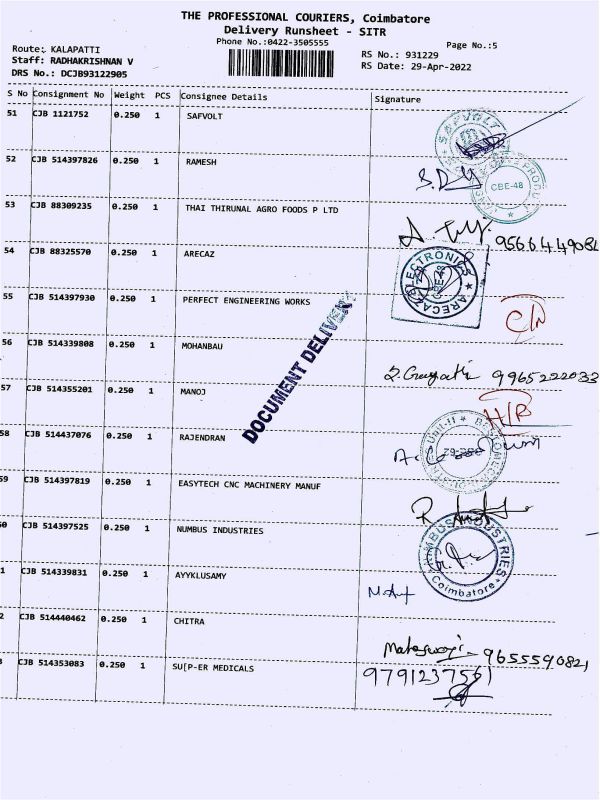 THE PROFESSIONAL COURIERS, Coimbatore
Delivery Runsheet - SITR
Phone No.:0422-3505555
Page No.:5
Route: KALAPATTI
Staff: RADHAKRISHNAN V
DRS No.: DCJB93122905
RS No.: 931229
RS Date: 29-Apr-2022
S No Consignment No Weight PCS Consignee Details Signature
51 CJB 1121752 0.250 1 SAFVOLT
SAFVOLT
52 CJB 514397826 0.250 1 RAMESH
S.D
CBE-48
53 CJB 88309235 0.250 1 THAI THIRUNAL AGRO FOODS P LTD
9566449084
54 CJB 88325570 0.250 1 ARECAZ
ELECTRONICS
55 CJB 514397930 0.250 1 PERFECT ENGINEERING WORKS
DOCUMENT DELIVERY
56 CJB 514339808 0.250 1 MOHANBAU
9965222033
57 CJB 514355201 0.250 1 MANOJ
H/R
58 CJB 514437076 0.250 1 RAJENDRAN
UNIT-II
59 CJB 514397819 0.250 1 EASYTECH CNC MACHINERY MANUF
0 CJB 514397525 0.250 1 NUMBUS INDUSTRIES
NIMBUS INDUSTRIES
Coimbatore
1 CJB 514339831 0.250 1 AYYKLUSAMY
2 CJB 514440462 0.250 1 CHITRA
9655590821
3 CJB 514353083 0.250 1 SU[P-ER MEDICALS
9791237561